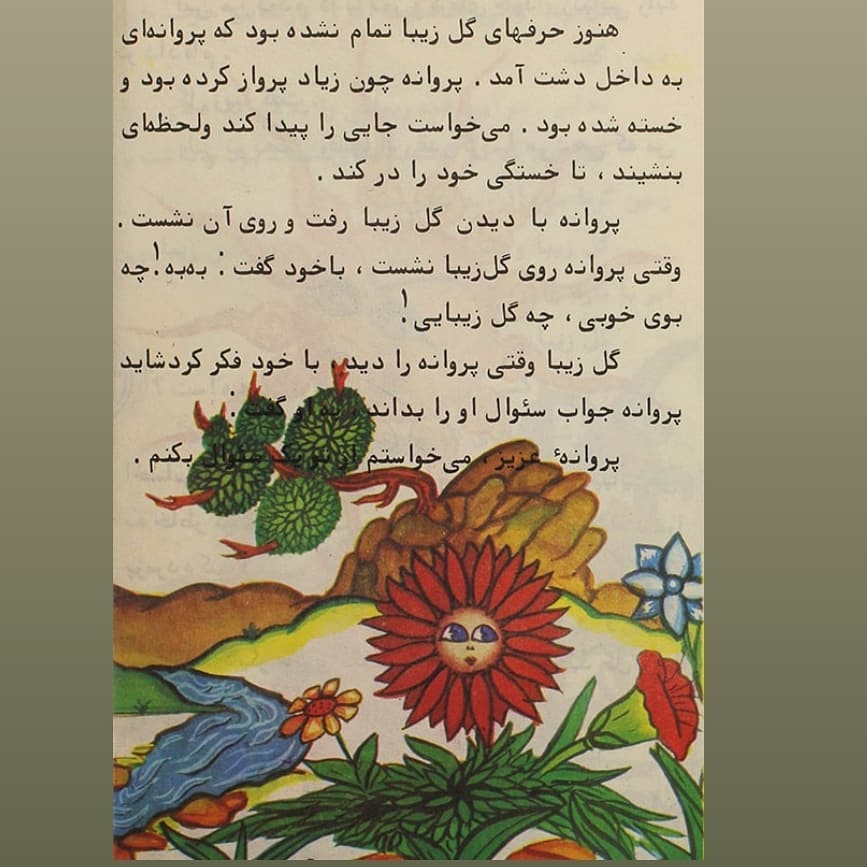 هنوز حرفهای گل زیبا تمام نشده بود که پروانه‌ای
به داخل دشت آمد . پروانه چون زیاد پرواز کرده بود و
خسته شده بود . می‌خواست جایی را پیدا کند ولحظه‌ای
بنشیند ، تا خستگی خود را در کند .
پروانه با دیدن گل زیبا رفت و روی آن نشست .
وقتی پروانه روی گل‌زیبا نشست ، باخود گفت : به‌به! چه
بوی خوبی ، چه گل زیبایی!
گل زیبا وقتی پروانه را دید، با خود فکر کردشاید
پروانه جواب سئوال او را بداند، به او گفت :
پروانهٔ عزیز، می‌خواستم از تو یک سئوال بکنم .